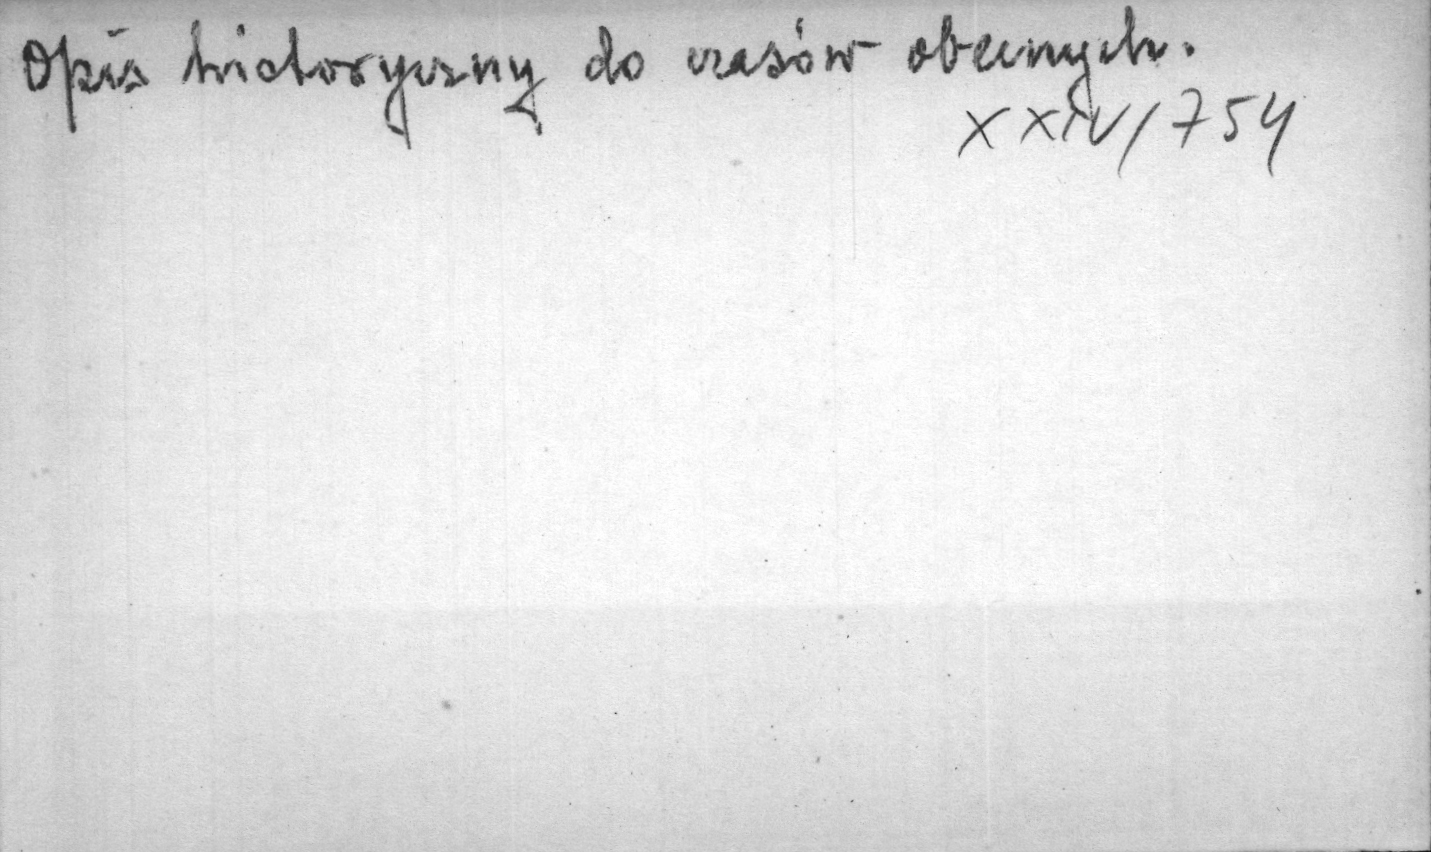 Opis historyczny do czasów obecnych.
XXIV/754